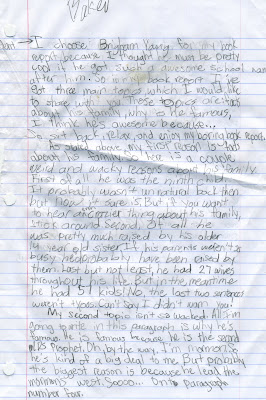 Baker
I choose Brigham Young for my book
report because I thought he must be pretty
cool if he got such a awesome school named
after him. So in my book report I've
got three main topics which I would like
to share with you. These topics are: facts
about his family, why so he famous,
I think he's awesome because...
So sit back, relax, and enjoy my boring book report.
As stated above, my first reason is facts
about his family so here is a couple
weird and wacky reasons about his family.
First of all he was the ninth child.
It probably wasn't unnatural back then
but now it sure is. But if you want
to hear a crazier thing about his family,
it's right around Second. Of all he
was pretty much raised by his older
14 year old sister. If his parents weren't so
busy he probably have been raised by
them. Last but not least, he had 27 wives
throughout his life. But in the meantime
he had 57 kids! No, the last two sentences
weren't typos. Can't say I didn't warn you.
My second topic isn't so wacked. All I'm
going to write in this paragraph is why he's
famous. He is famous because he is the second
LDS Prophet. Oh, by the way, I'm mormon. So
he's kind of a big deal to me. But probably
the biggest reason is because he lead the
mormons west. Soooo... Onto paragraph
number four.